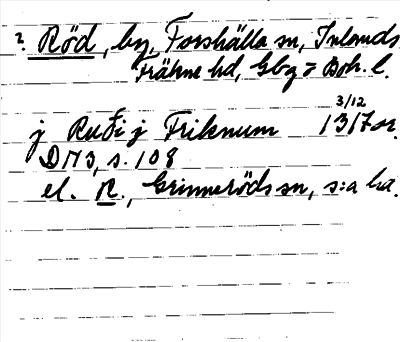 ? Röd, by, Forshälla sn, Inlands
Fräkne hd, Gbg o Boh. l.
3/12
j Rudi j Friknum 1317 or.
DN3, s. 108
el. R., Grinneröds sn, s:a hd.